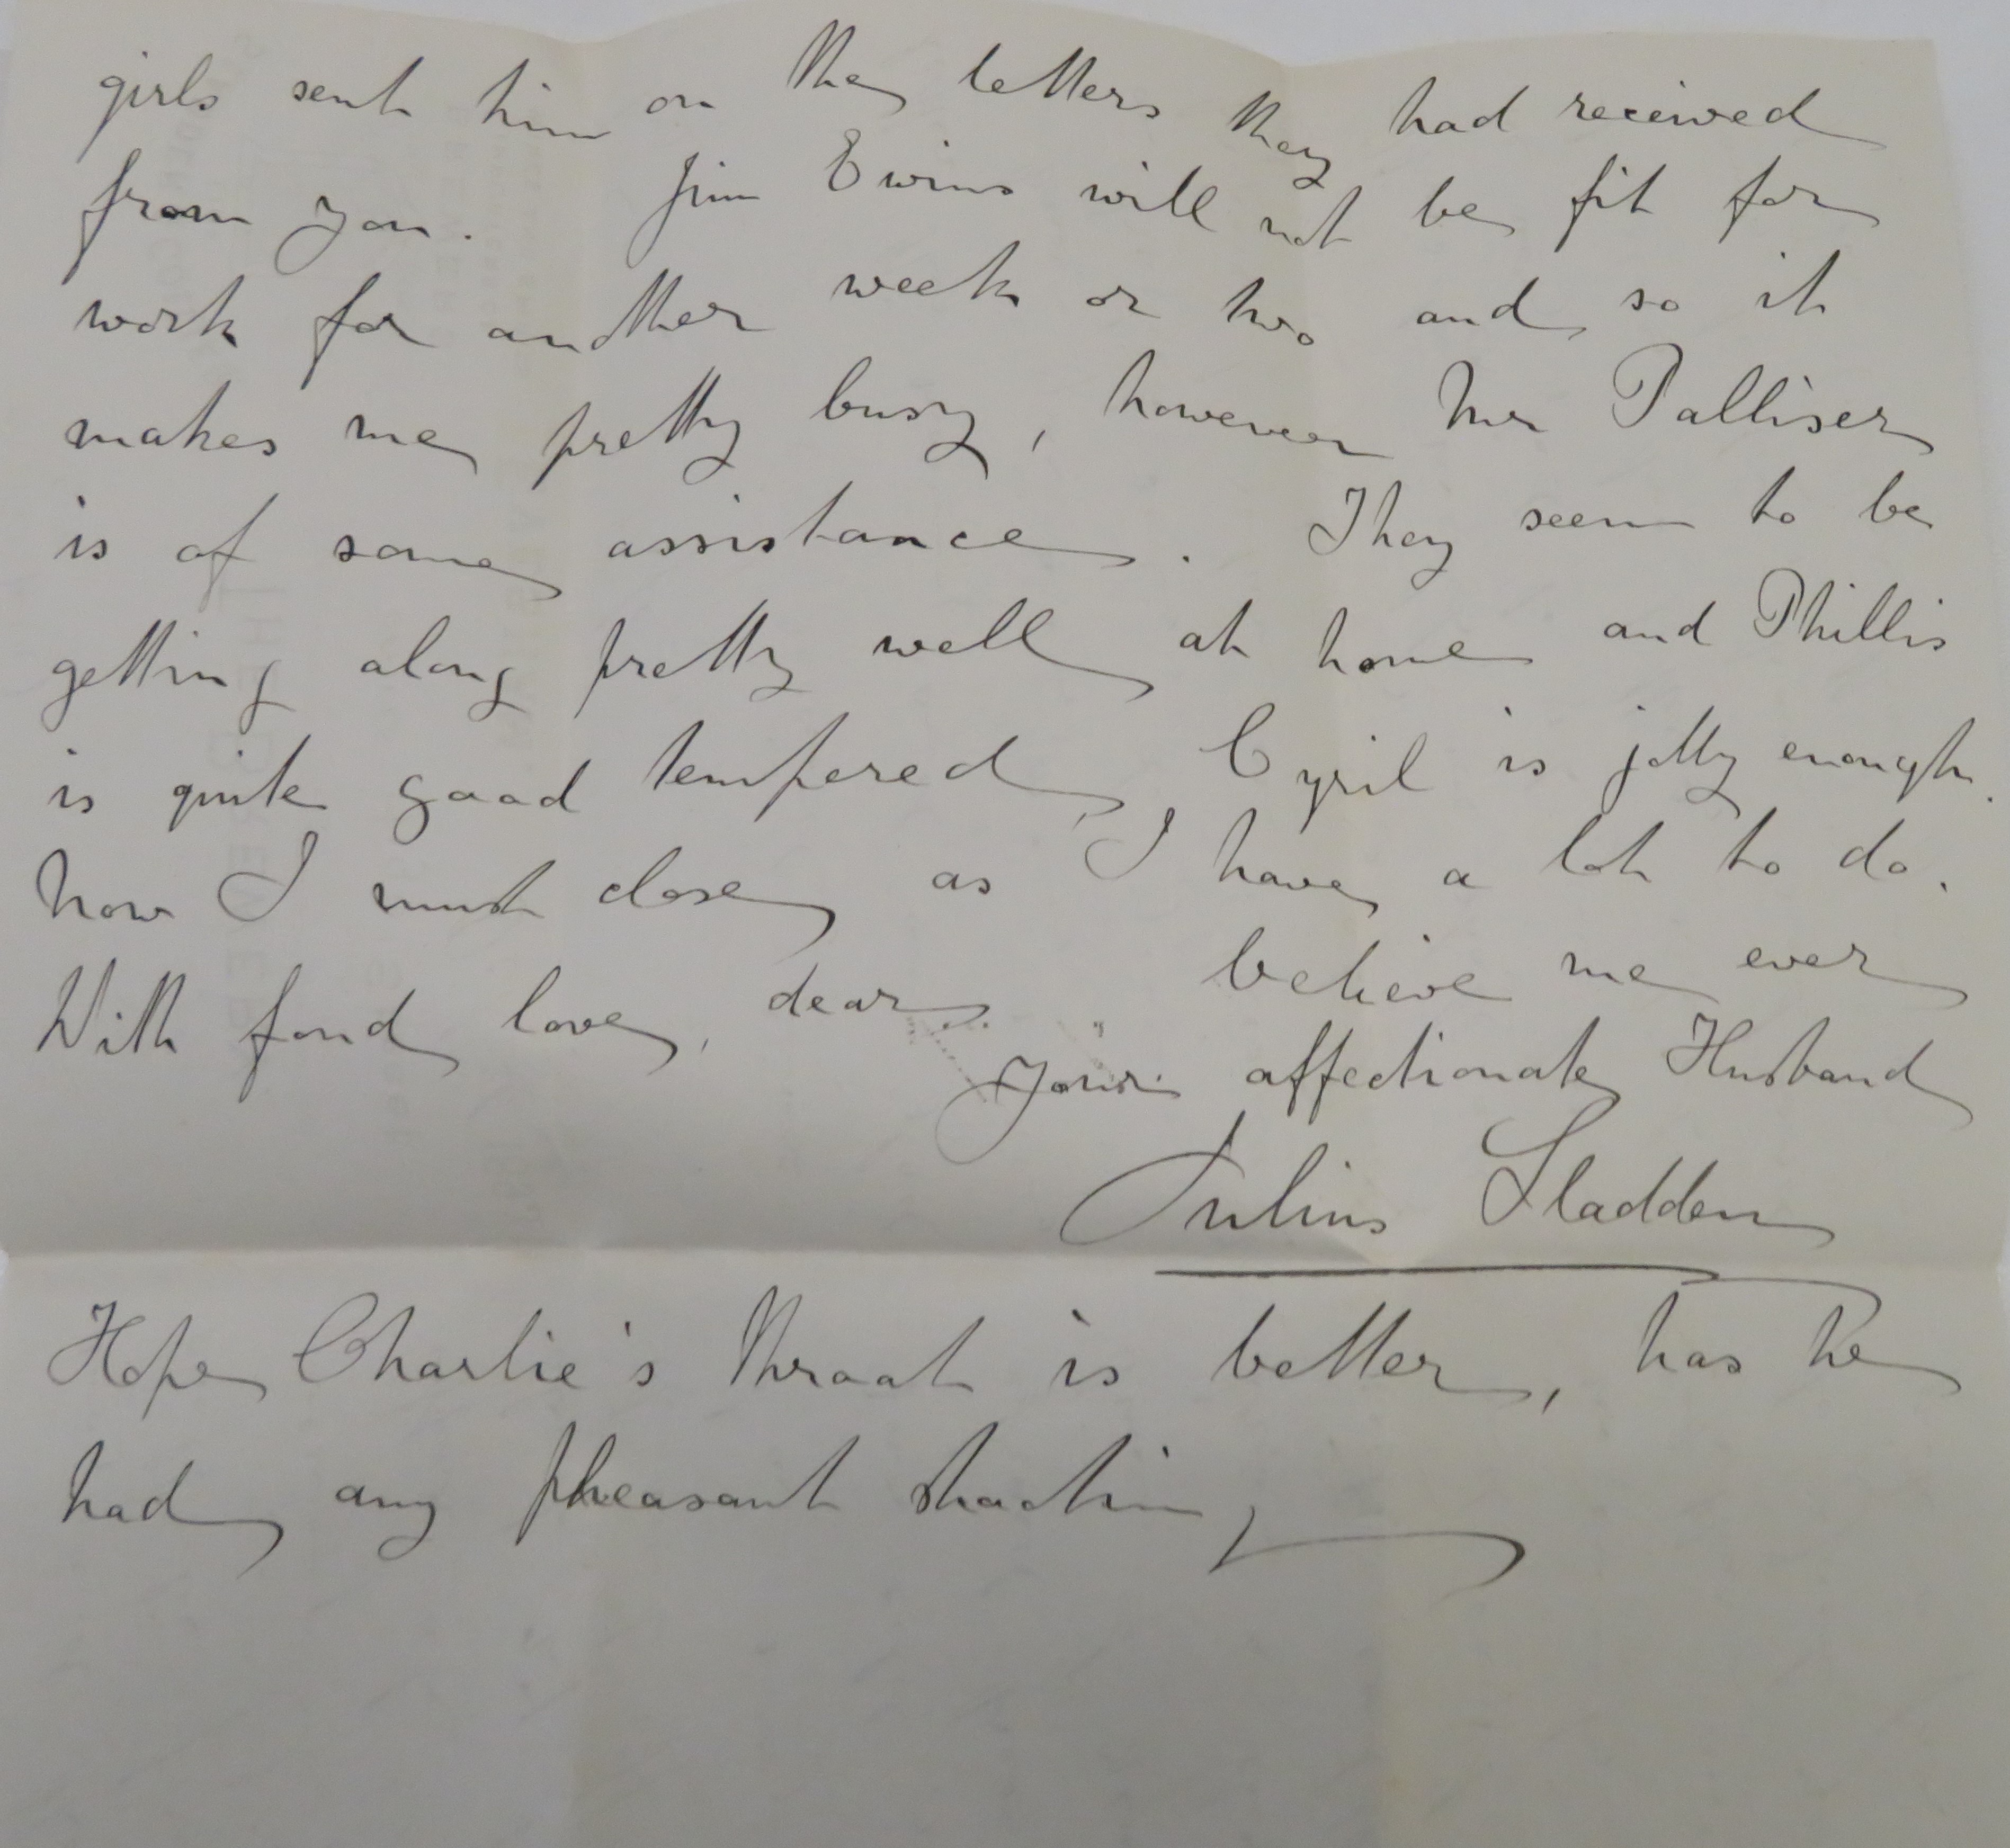 girls sent him on the letters they had received
from you. Jim Ewins will not be fit for
work for another week or two and so it
makes me pretty busy, however Mr Palliser
is of some assistance. They seem to be
getting along pretty well at home and Phillis
is quite good tempered, Cyril is jolly enough.
Now I must close as I have a lot to do.
With fond love, dear. believe me ever
Your affectionate Husband
Julius Sladden
Hope Charlie's throat is better, has he
had any pheasant shooting